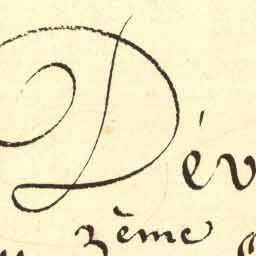 Dév
3ème